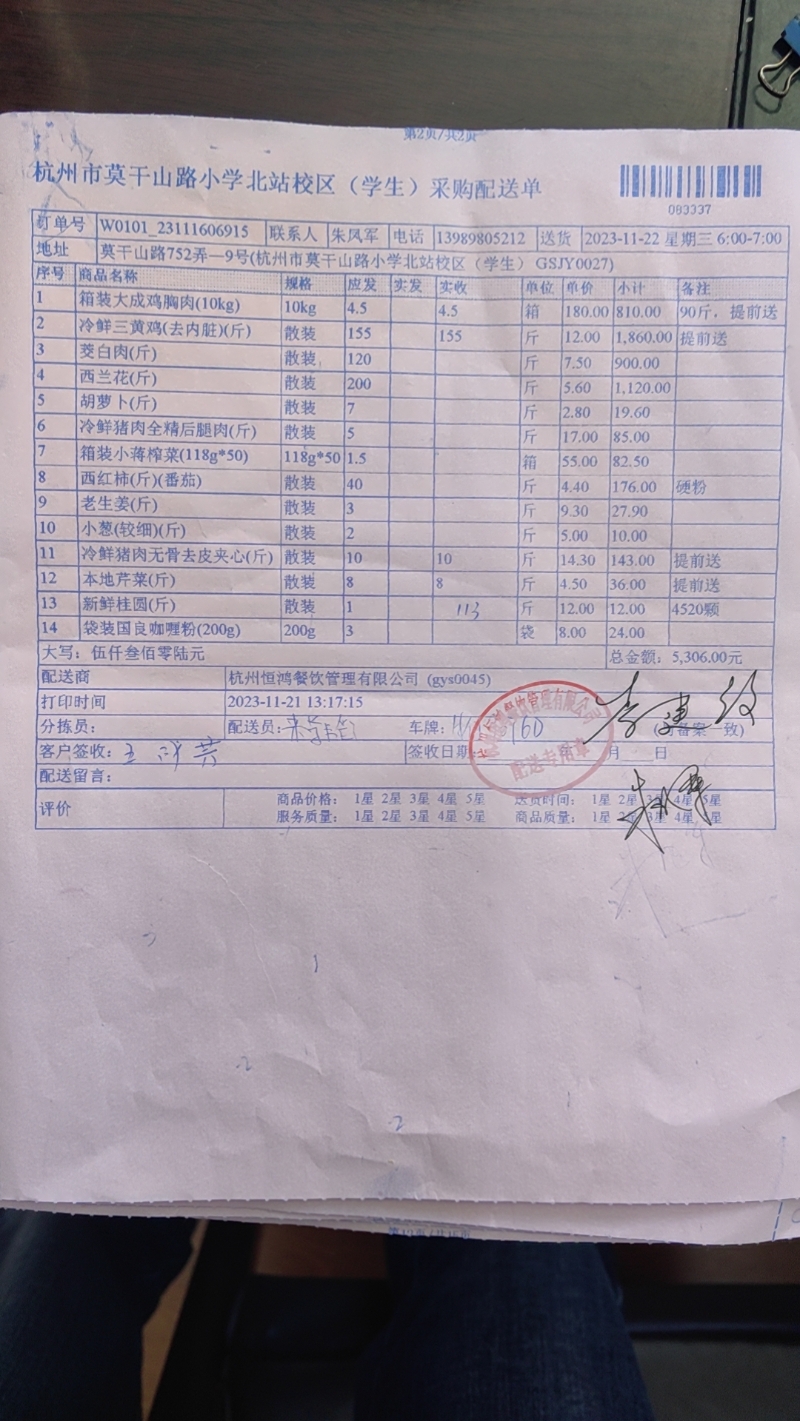 第2页/共2页
杭州市莫干山路小学北站校区（学生）采购配送单
083337
订单号 W0101_23111606915 联系人 朱凤军 电话 13989805212 送货 2023-11-22 星期三 6:00-7:00
地址 莫干山路752弄—9号(杭州市莫干山路小学北站校区（学生） GSJY0027)
序号 商品名称 规格 应发 实发 实收 单位 单价 小计 备注
1 箱装大成鸡胸肉(10kg) 10kg 4.5 4.5 箱 180.00 810.00 90斤，提前送
2 冷鲜三黄鸡(去内脏)(斤) 散装 155 155 斤 12.00 1,860.00 提前送
3 茭白肉(斤) 散装 120 斤 7.50 900.00
4 西兰花(斤) 散装 200 斤 5.60 1,120.00
5 胡萝卜(斤) 散装 7 斤 2.80 19.60
6 冷鲜猪肉全精后腿肉(斤) 散装 5 斤 17.00 85.00
7 箱装小蒋榨菜(118g*50) 118g*50 1.5 箱 55.00 82.50
8 西红柿(斤)(番茄) 散装 40 斤 4.40 176.00 硬粉
9 老生姜(斤) 散装 3 斤 9.30 27.90
10 小葱(较细)(斤) 散装 2 斤 5.00 10.00
11 冷鲜猪肉无骨去皮夹心(斤) 散装 10 10 斤 14.30 143.00 提前送
12 本地芹菜(斤) 散装 8 8 斤 4.50 36.00 提前送
13 新鲜桂圆(斤) 散装 1 113 斤 12.00 12.00 4520颗
14 袋装国良咖喱粉(200g) 200g 3 袋 8.00 24.00
大写：伍仟叁佰零陆元 总金额：5,306.00元
配送商 杭州恒鸿餐饮管理有限公司 (gys0045)
打印时间 2023-11-21 13:17:15
分拣员： 配送员： 车牌： 备案一致)
客户签收： 签收日期： 年 月 日
配送专用章
配送留言：
评价 商品价格： 1星 2星 3星 4星 5星 送货时间： 1星 2星 3星 4星 5星
服务质量： 1星 2星 3星 4星 5星 商品质量： 1星 2星 3星 4星 5星